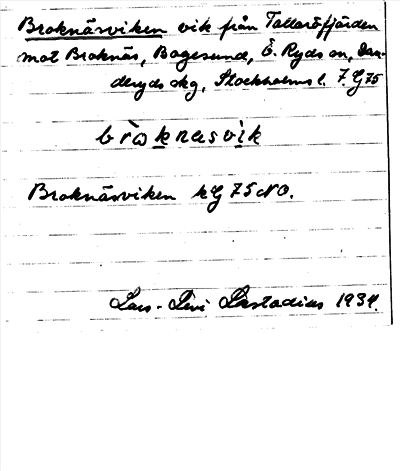 Broknäsviken vik från Tallaröfjärden
mot Broknäs, Bogesund, Ö. Ryds sn, Dan-
deryds skg, Stockholms l. 7. Ej 75
Broknäsviken kEj 75 NO.
Lars-Levi Læstadius 1934.